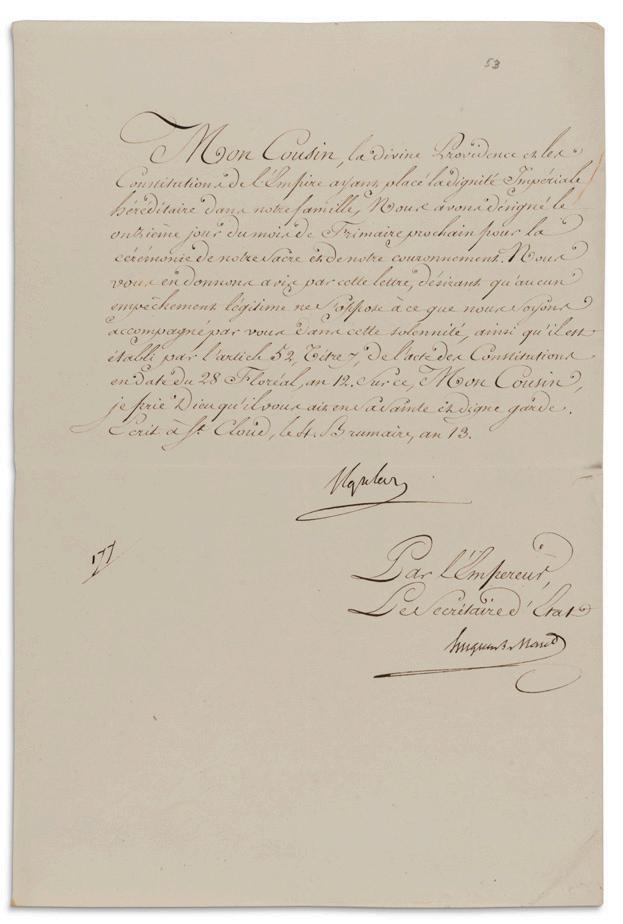 53
Mon Cousin, la divine Providence et les
Constitutions de l'Empire ayant placé la dignité Impériale
héréditaire dans notre famille, Nous avons désigné le
onzième jour du mois de Frimaire prochain pour la
cérémonie de notre Sacre et de notre couronnement. Nous
vous en donnons avis par cette lettre, désirant qu'aucun
empêchement légitime ne s'oppose à ce que nous soyons
accompagné par vous dans cette solennité, ainsi qu'il est
établi par l'article 52, Titre 7, de l'acte des Constitutions
en date du 28 Floréal, an 12. Sur ce, Mon Cousin,
je prie Dieu qu'il vous ait en sa sainte et digne garde.
Écrit à St. Cloud, le 4. Brumaire, an 13.
Par l'Empereur,
Le Secrétaire d'État